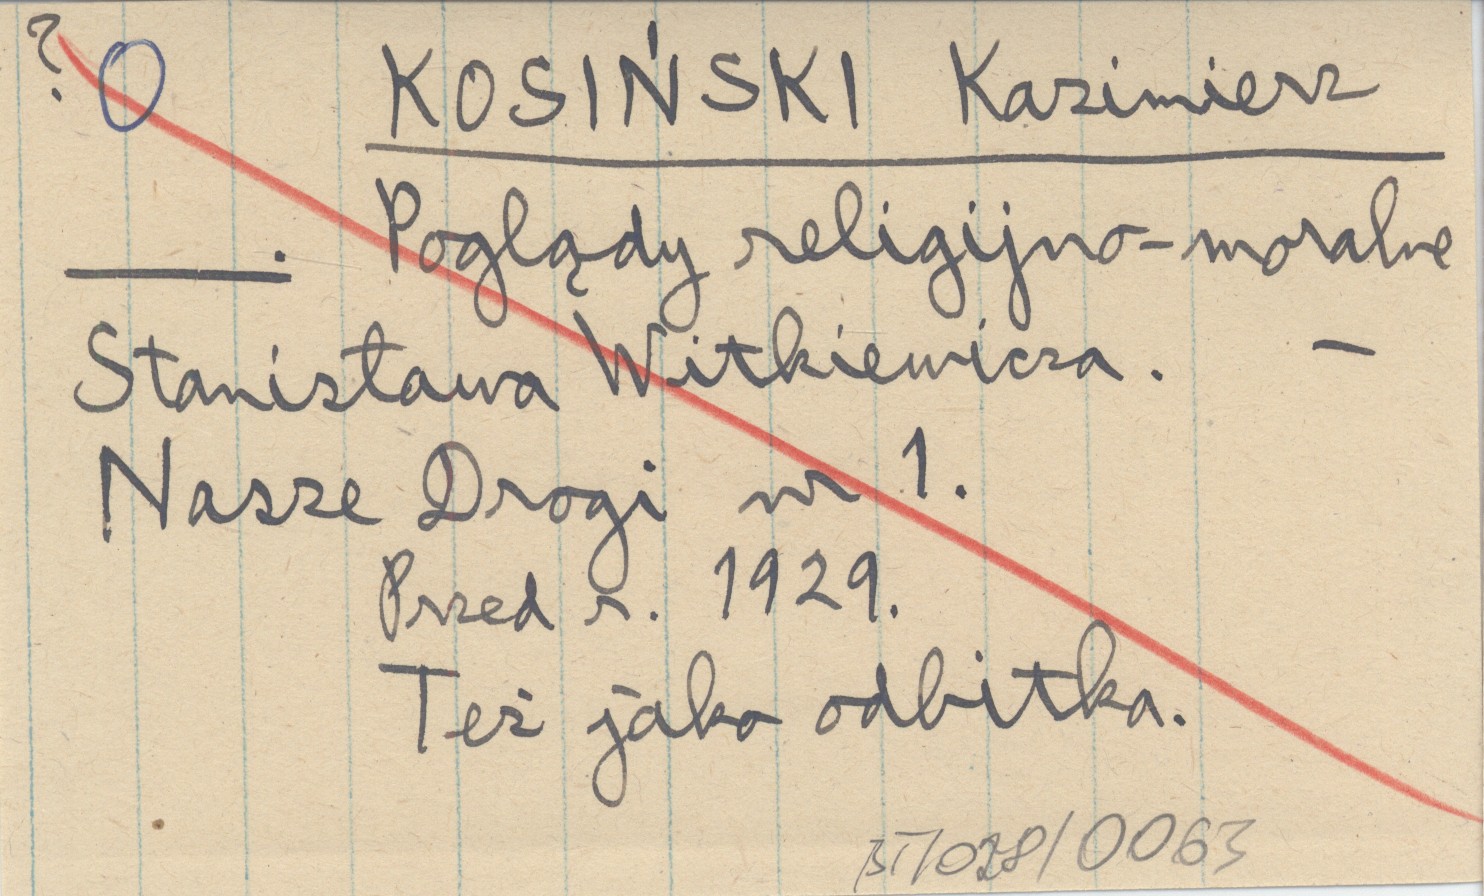 ? O KOSIŃSKI Kazimierz
. Poglądy religijno-moralne
Stanisława Witkiewicza. –
Nasze Drogi nr 1.
Przed r. 1929.
Też jako odbitka.
BT/028/0063